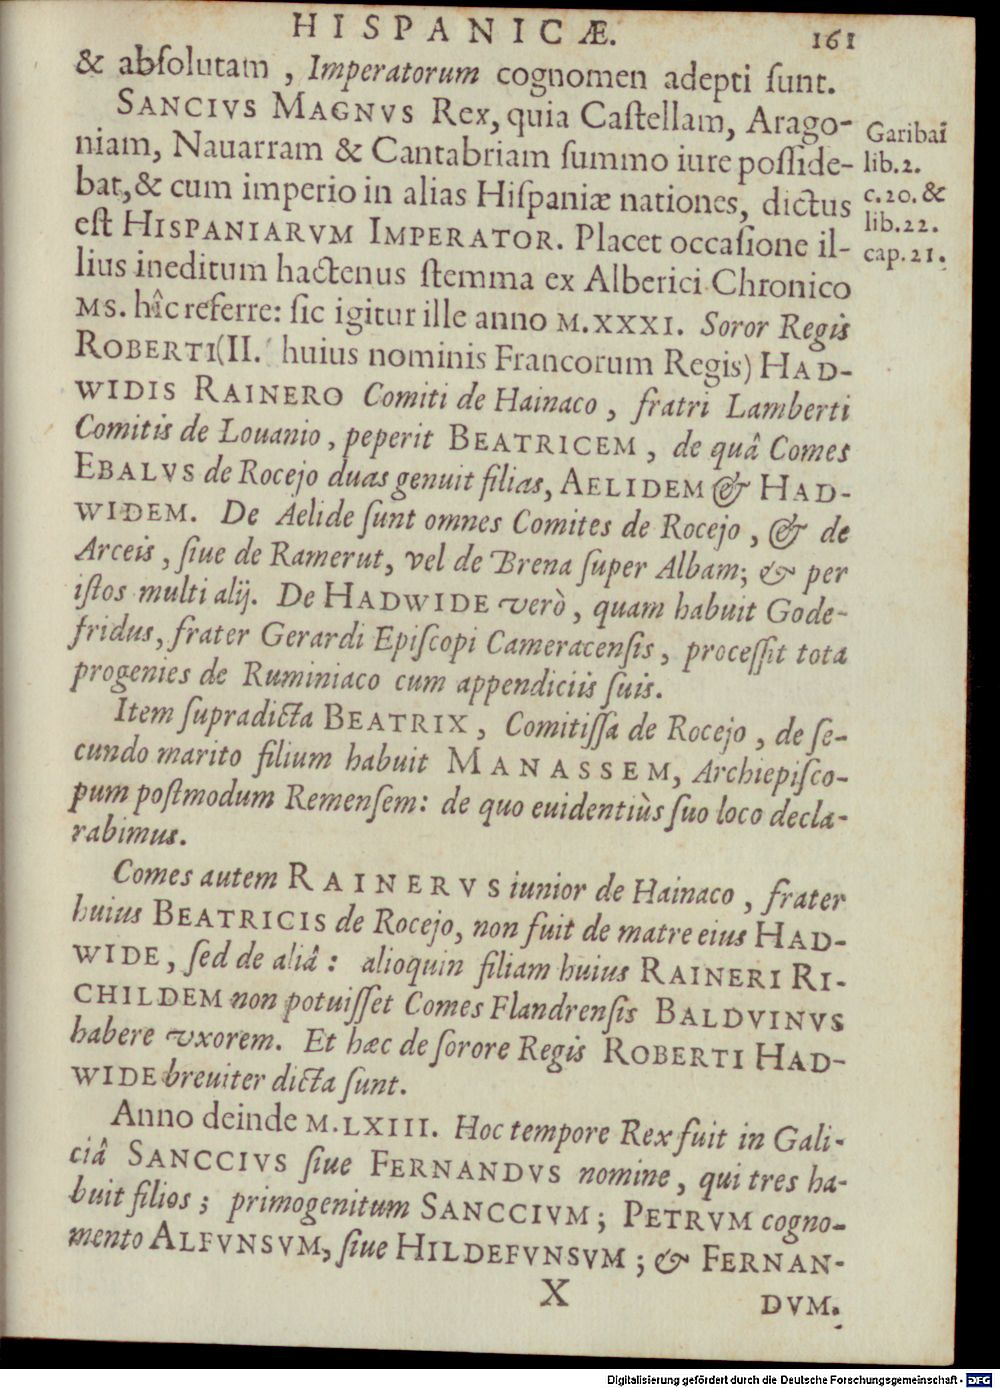 HISPANICÆ. 161
& abſolutam, Imperatorum cognomen adepti ſunt.
SANCIVS MAGNVS Rex, quia Caſtellam, Arago-
niam, Nauarram & Cantabriam ſummo iure poſſide-
bat, & cum imperio in alias Hiſpaniæ nationes, dictus
eſt HISPANIARVM IMPERATOR. Placet occaſione il-
lius ineditum hactenus ſtemma ex Alberici Chronico
MS. hîc referre: ſic igitur ille anno M.XXXI. Soror Regis
ROBERTI (II. huius nominis Francorum Regis) HAD-
WIDIS RAINERO Comiti de Hainaco, fratri Lamberti
Comitis de Louanio, peperit BEATRICEM, de quâ Comes
EBALVS de Rocejo duas genuit filias, AELIDEM & HAD-
WIDEM. De Aelide ſunt omnes Comites de Rocejo, & de
Arceis, ſiue de Ramerut, vel de Brena ſuper Albam; & per
iſtos multi alij. De HADWIDE verò, quam habuit Gode-
fridus, frater Gerardi Epiſcopi Cameracenſis, proceſſit tota
progenies de Ruminiaco cum appendiciis ſuis.
Item ſupradicta BEATRIX, Comitiſſa de Rocejo, de ſe-
cundo marito filium habuit MANASSEM, Archiepiſco-
pum poſtmodum Remenſem: de quo euidentiùs ſuo loco decla-
rabimus.
Comes autem RAINERVS iunior de Hainaco, frater
huius BEATRICIS de Rocejo, non fuit de matre eius HAD-
WIDE, ſed de aliâ: alioquin filiam huius RAINERI RI-
CHILDEM non potuiſſet Comes Flandrenſis BALDVINVS
habere vxorem. Et hæc de ſorore Regis ROBERTI HAD-
WIDE breuiter dicta ſunt.
Anno deinde M.LXIII. Hoc tempore Rex fuit in Gali-
ciâ SANCCIVS ſiue FERNANDVS nomine, qui tres ha-
buit filios; primogenitum SANCCIVM; PETRVM cogno-
mento ALFVNSVM, ſiue HILDEFVNSVM; & FERNAN-
X DVM.
Garibai
lib.2.
c.20.&
lib.22.
cap.21.
Digitalisierung gefördert durch die Deutsche Forschungsgemeinschaft - DFG